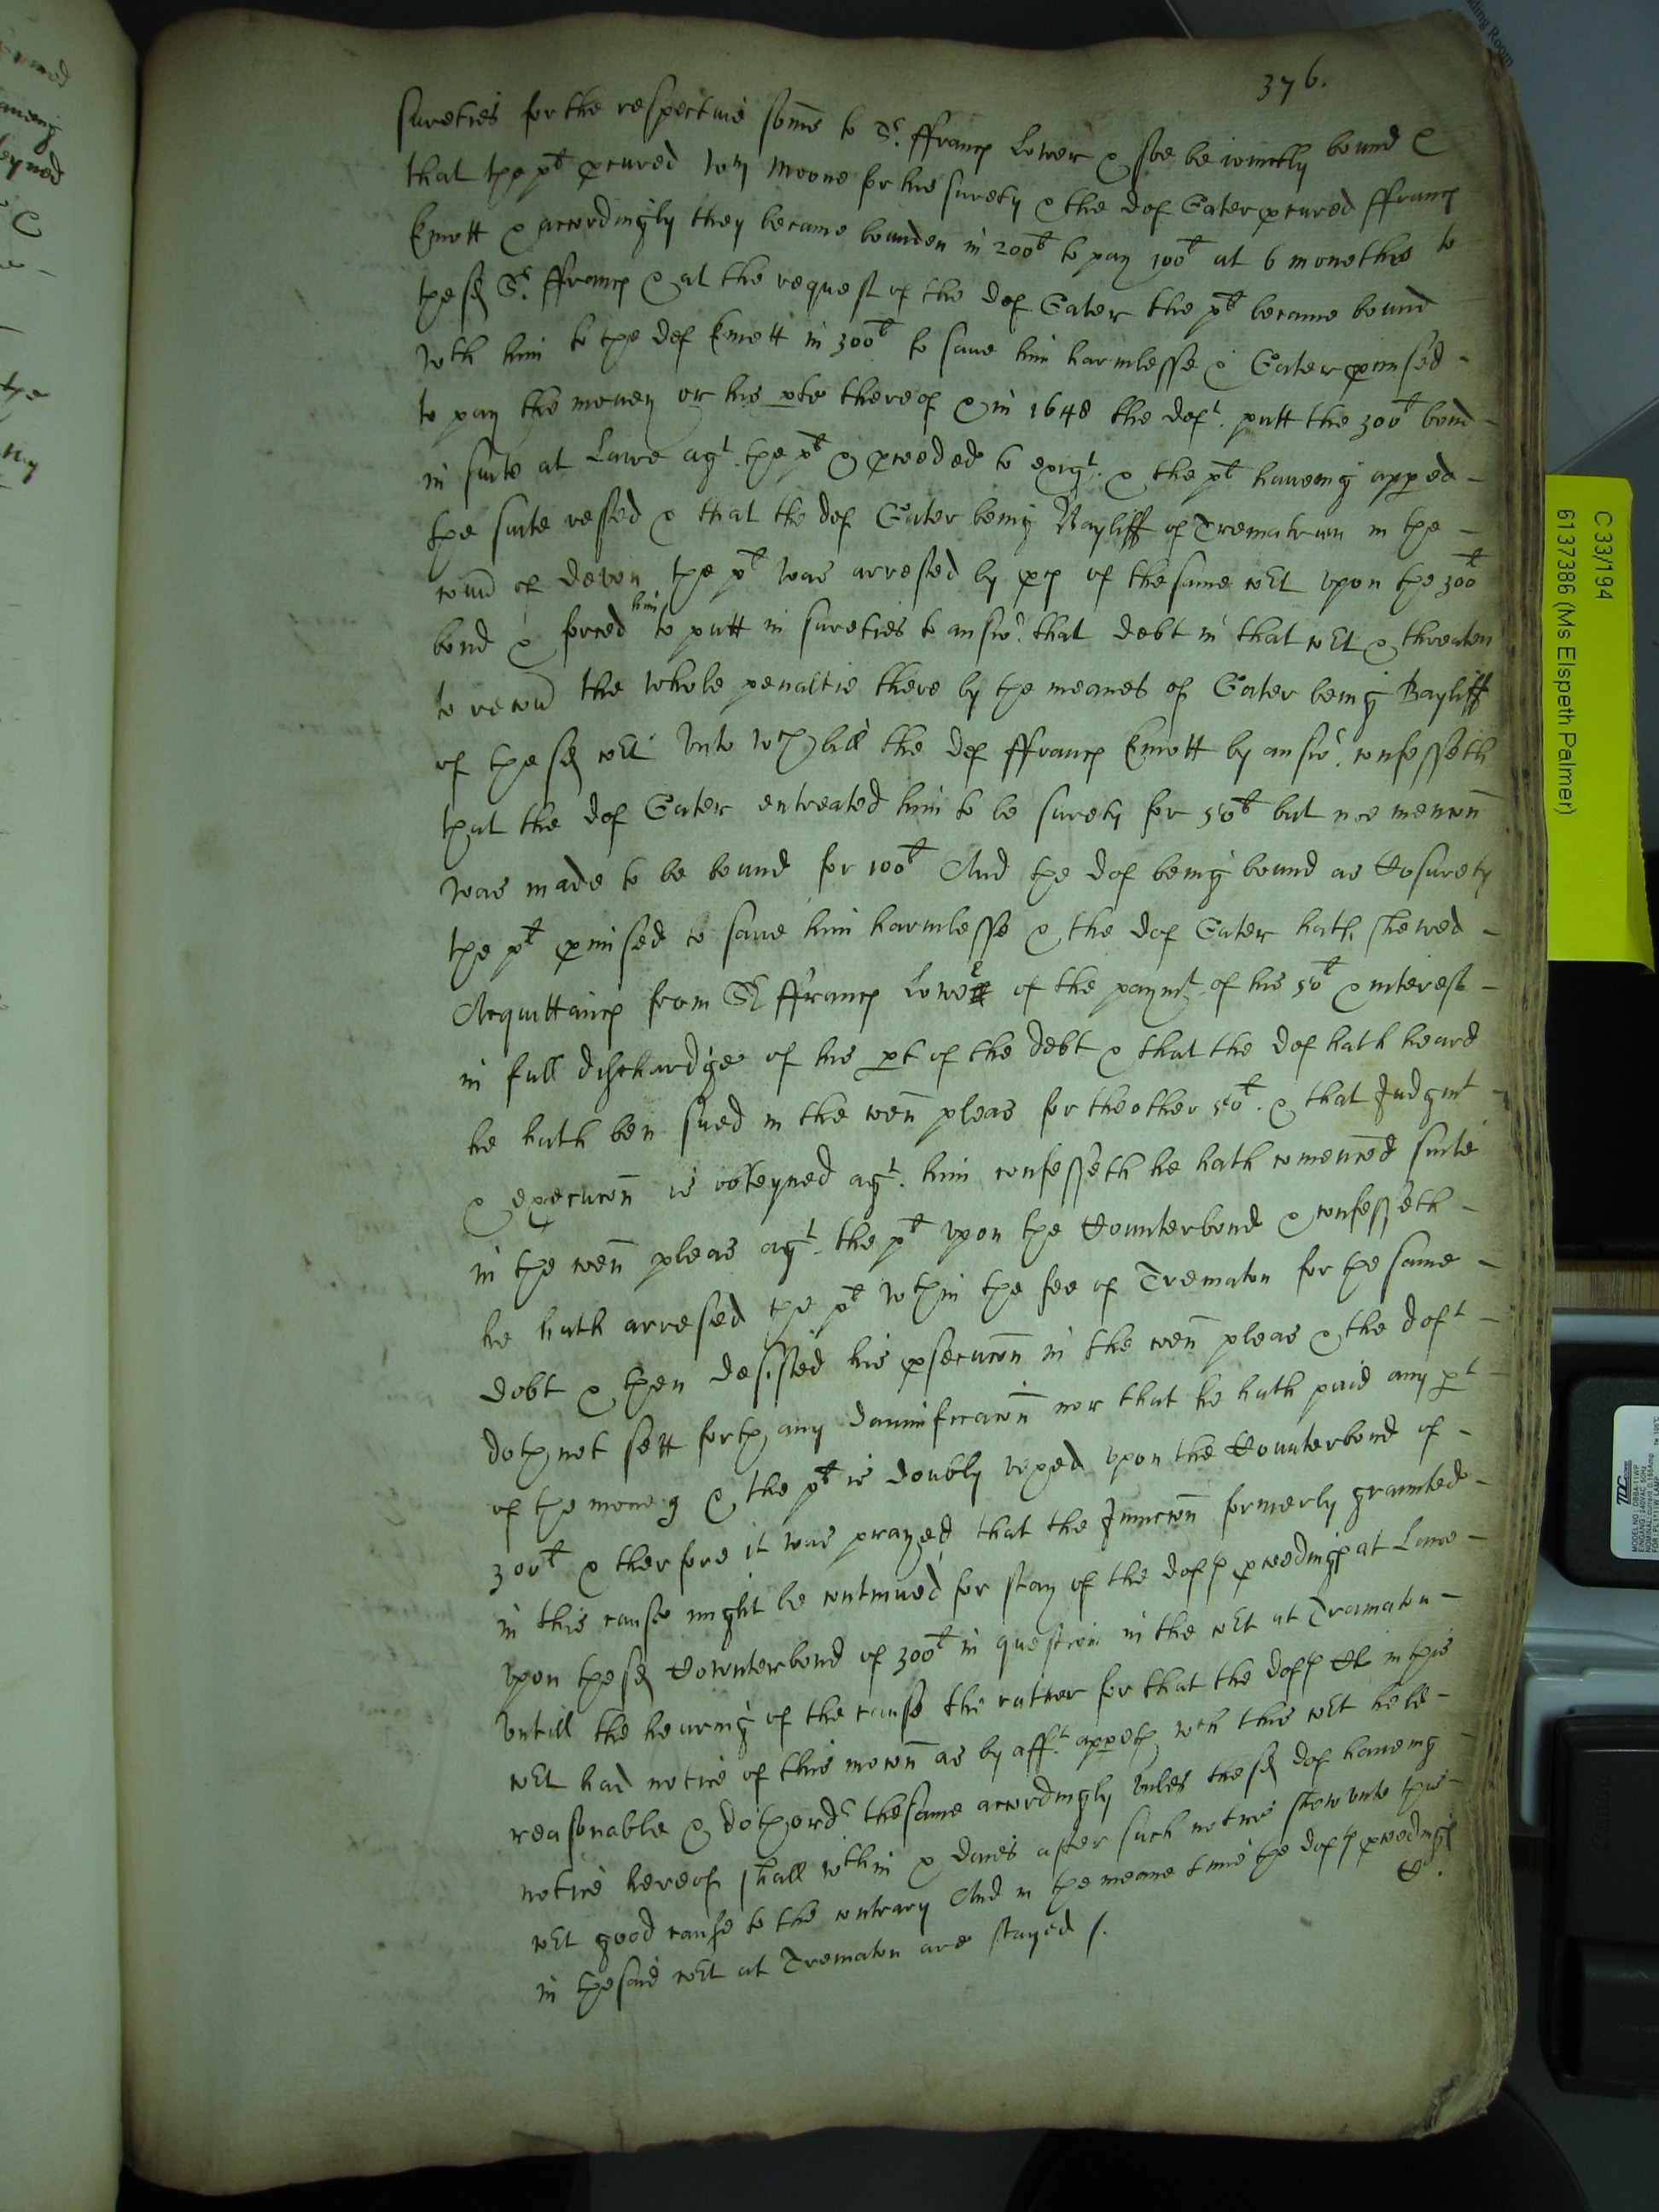 376.
sureties for the respective some to Sr. ffrancs Lower & soe be ioinctly bound &
that the plt pcured Wm Moone for his surety & the def Eater pcured ffrancs
Emott & accordingly they became bounden in 200l to pay 100l at 6 monethes to
the sd Sr. ffrancs & at the request of the def Eater the plt became bound
wth him to the def Emott in 300l to saue him harmlesse & Eater pmised -
to pay the money or his pte thereof & in 1648 the deft. putt the 300l bond -
in suite at Lawe agt. the plt & pceeded to exigt. & the plt haueing apped -
the suite ressed & that the def Eater being Bayliff of Trematown in the -
County of Devon the plt was arrested by pcs of the same Cot vpon the 300l
bond & forced him to putt in sureties to answr. that debt in that Cot & threaten
to recour the whole penaltie there by the meanes of Eater being Bayliff
of the sd Cot Vnto wch bill the def ffrancs Emott by answr. confesseth
that the def Eater entreated him to be surety for 50l but noe mencon
was made to be bound for 100l And the def being bound as Cosurety
the plt pmised to saue him harmlesse & the def Eater hath shewed -
Acquittancs from Sr ffrancs Lower of the paymt. of his 50l & interest -
in full dischardge of his pt of the debt & that the def hath heard
he hath ben sued in the Comon pleas for the other 50l. & that Judgmt -
& execucon is obteyned agt. him confesseth he hath comenced suite
in the Comon pleas agt. the plt vpon the Counterbond & confesseth -
he hath arrested the plt wthin the fee of Trematon for the same -
debt & then desisted his psecucon in the Comon pleas & the deft -
doth not sett forth any damnificacon nor that he hath paid any pt -
of the money & the plt is doubly vexed vpon the Counterbond of -
300l & therfore it was prayed that the Iniuncon formerly graunted -
in this cause might be continued for stay of the defts pceedings at Lawe -
vpon the sd Counterbond of 300l in question in the Cot at Trematon -
Vntill the hearing of the cause the rather for that the defts Cl. in this
Cot had notice of this mocon as by afft. appeth wch this Cot held -
reasonable & doth ordr the same accordingly vnles the sd def haueing -
notice hereof shall wthin & daies after such notice shew vnto this -
Cot good cause to the contrary And in the meane time the defts pceedings
in the said Cot at Trematon are stayed /.
C 33/194
6137386 (Ms Elspeth Palmer)